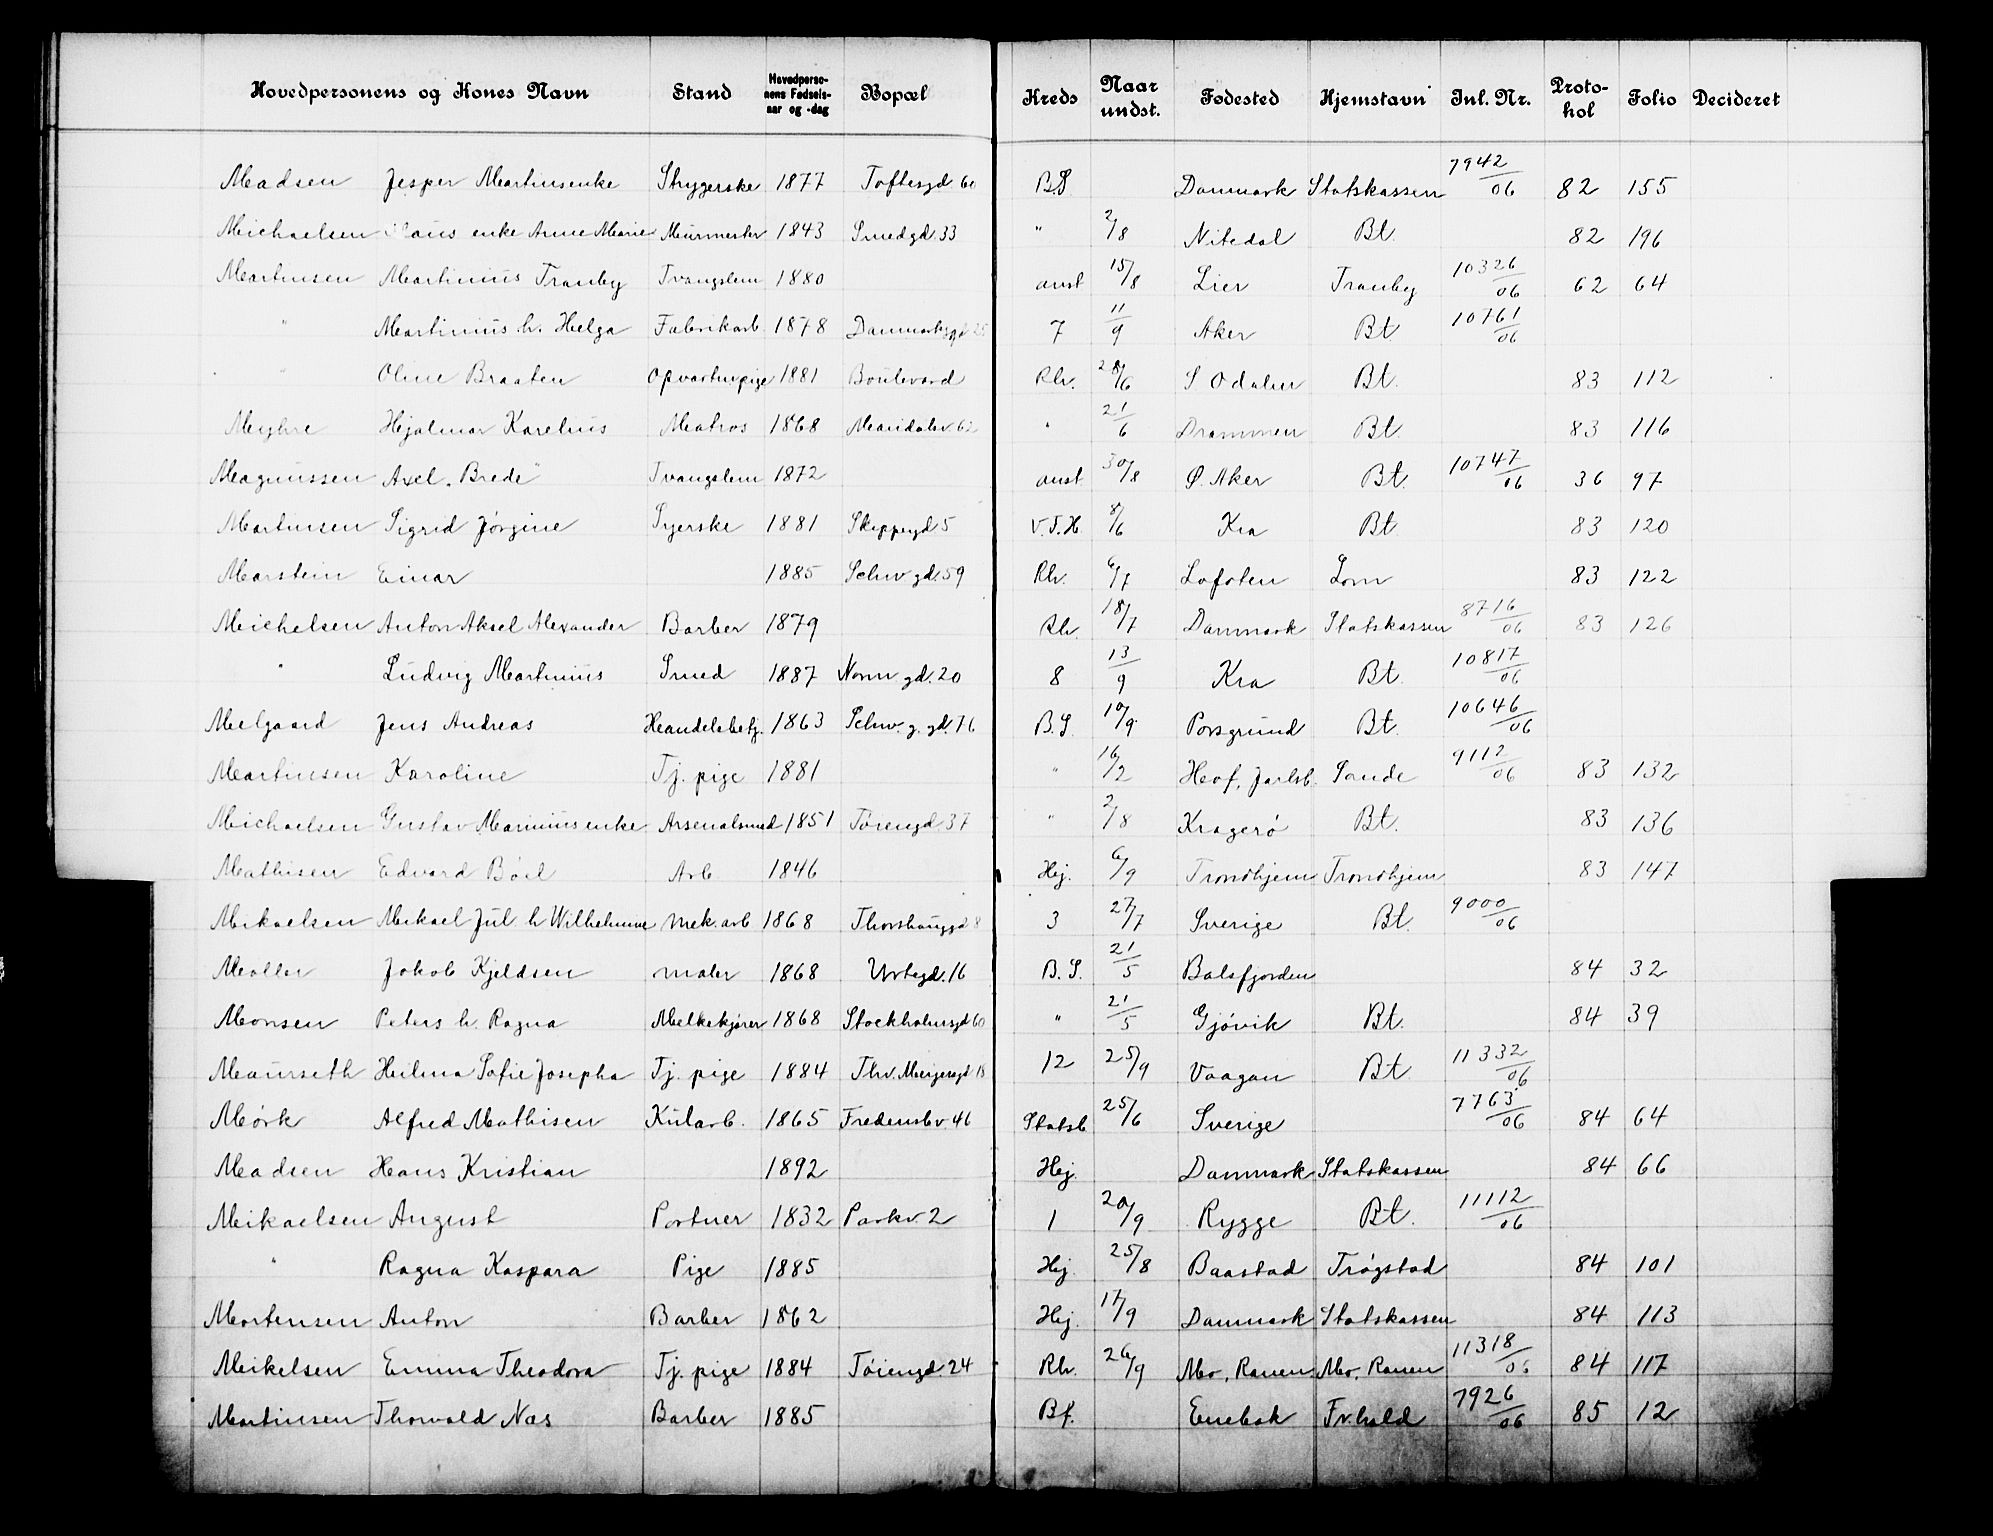 Hovedpersonens og Kones Navn Stand Hovedpersonens Fødselsaar og -dag Bopæl Kreds Naar undst. Fødested Hjemstavn Inl. Nr. Protokol Folio Decideret
Madsen Jesper Martinsenke Strygerske 1877 Toftesgd 60 B.S Danmark Statskassen 7942/06 82 155
Michaelsen enke Anne Marie Murmester 1843 Smedgd. 33 " 2/8 Nitedal Bt. 82 196
Martinsen Martinius Tranby Tvangslem 1880 anst 15/8 Lier Tranby 10326/06 62 64
" Martinius h. Helga Fabrikarb. 1878 Danmarksgd 25 7 11/9 Aker Bt 10761/06
" Oline Braaten Opvartnpige 1881 Boulevard Rh. 28/6 S Odalen Bt. 83 112
Myhre Hjalmar Karelius Matros 1868 Maridalsv 62 " 21/6 Drammen Bt. 83 116
Magnussen Axel. Brede" Tvangslem 1872 anst 30/8 Ø. Aker Bt. 10747/06 36 97
Martinsen Sigrid Jørgine Syerske 1881 Skippergd 5 V.T.H. 8/6 Kra Bt. 83 120
Marstein Einar 1885 Schw gd. 59 Rh. 6/7 Lofoten Lom 83 122
Michelsen Anton Aksel Alexander Barber 1879 Rh. 18/7 Danmark Statskassen 8716/06 83 126
" Ludvig Martinius Smed 1887 Norm gd. 20 8 13/9 Kra Bt. 10817/06
Melgaard Jens Andreas Handelsbetj. 1863 Schw. g. gd. 76 B.S. 10/9 Porsgrund Bt. 10646/06
Martinsen Karoline Tj. pige 1881 " 16/2 Hof, Jarlsb. Sande 9112/06 83 132
Michaelsen Gustav Marinius enke Arsenalsmed 1851 Tøiengd 37 " 2/8 Kragerø Bt. 83 136
Mathisen Edvard Böel Arb. 1846 Hej. 6/9 Trondhjem Trondhjem 83 147
Mikaelsen Mikael Jul. h Wilhelmine mek. arb 1868 Thorshauggd 8 3 27/7 Sverige Bt. 9000/06
Møller Jakob Kjeldsen maler 1868 Urtegd. 16 B.S. 21/5 Balsfjorden 84 32
Monsen Peters h. Ragna Melkekjører 1868 Stockholmsgd 60 " 21/5 Gjøvik Bt. 84 39
Maurseth Hilma Sofie Josepha Tj. pige 1884 Thv. Meyersgd 18 12 25/9 Vaagan Bt. 11332/06
Mørk Alfred Mathisen Kularb. 1865 Fredensbv. 46 Statsb 25/6 Sverige 7763/06 84 64
Madsen Hans Kristian 1892 Hej. Danmark Statskassen 84 66
Mikaelsen August Portner 1832 Parkv. 2 1 20/9 Rygge Bt. 11112/06
" Ragna Kaspara Pige 1885 Hej. 25/8 Baastad Trøgstad 84 101
Mortensen Anton Barber 1862 Hej. 17/9 Danmark Statskassen 84 113
Mikelsen Emma Theodora Tj. pige 1884 Tøiengd. 24 Rh. 26/9 Mo, Ranen Mo, Ranen 11318/06 84 117
Martinsen Thorvald Næs Barber 1885 Bf. Enebak Fr.hald 7926/06 85 12